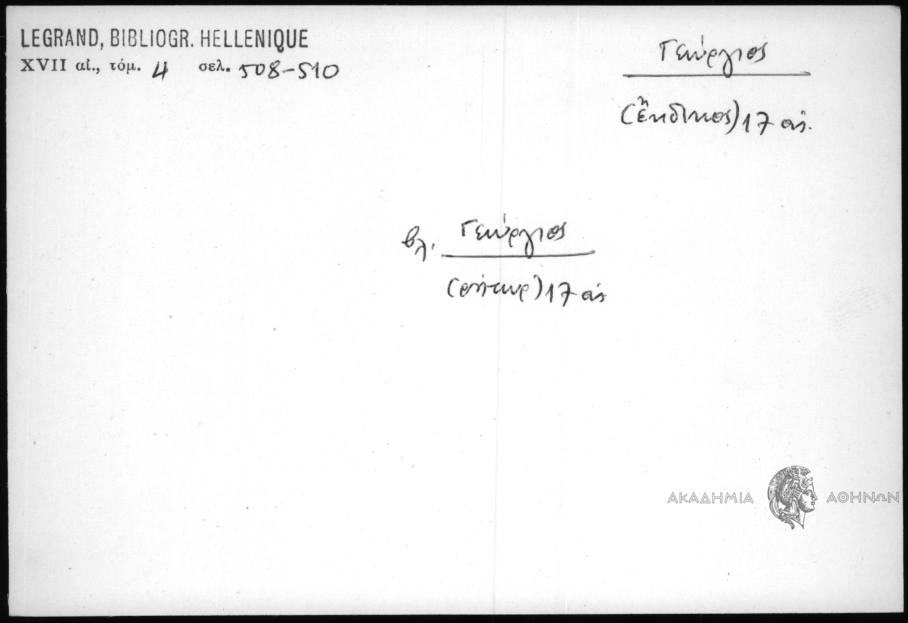 LEGRAND, BIBLIOGR. HELLENIQUE
XVII αἰ., τόμ. 4 σελ. 508-510
Γεώργιος
(ἔκδικος) 17 αἰ.
βλ. Γεώργιος
(ρήτωρ) 17 αἰ
ΑΚΑΔΗΜΙΑ ΑΘΗΝΩΝ